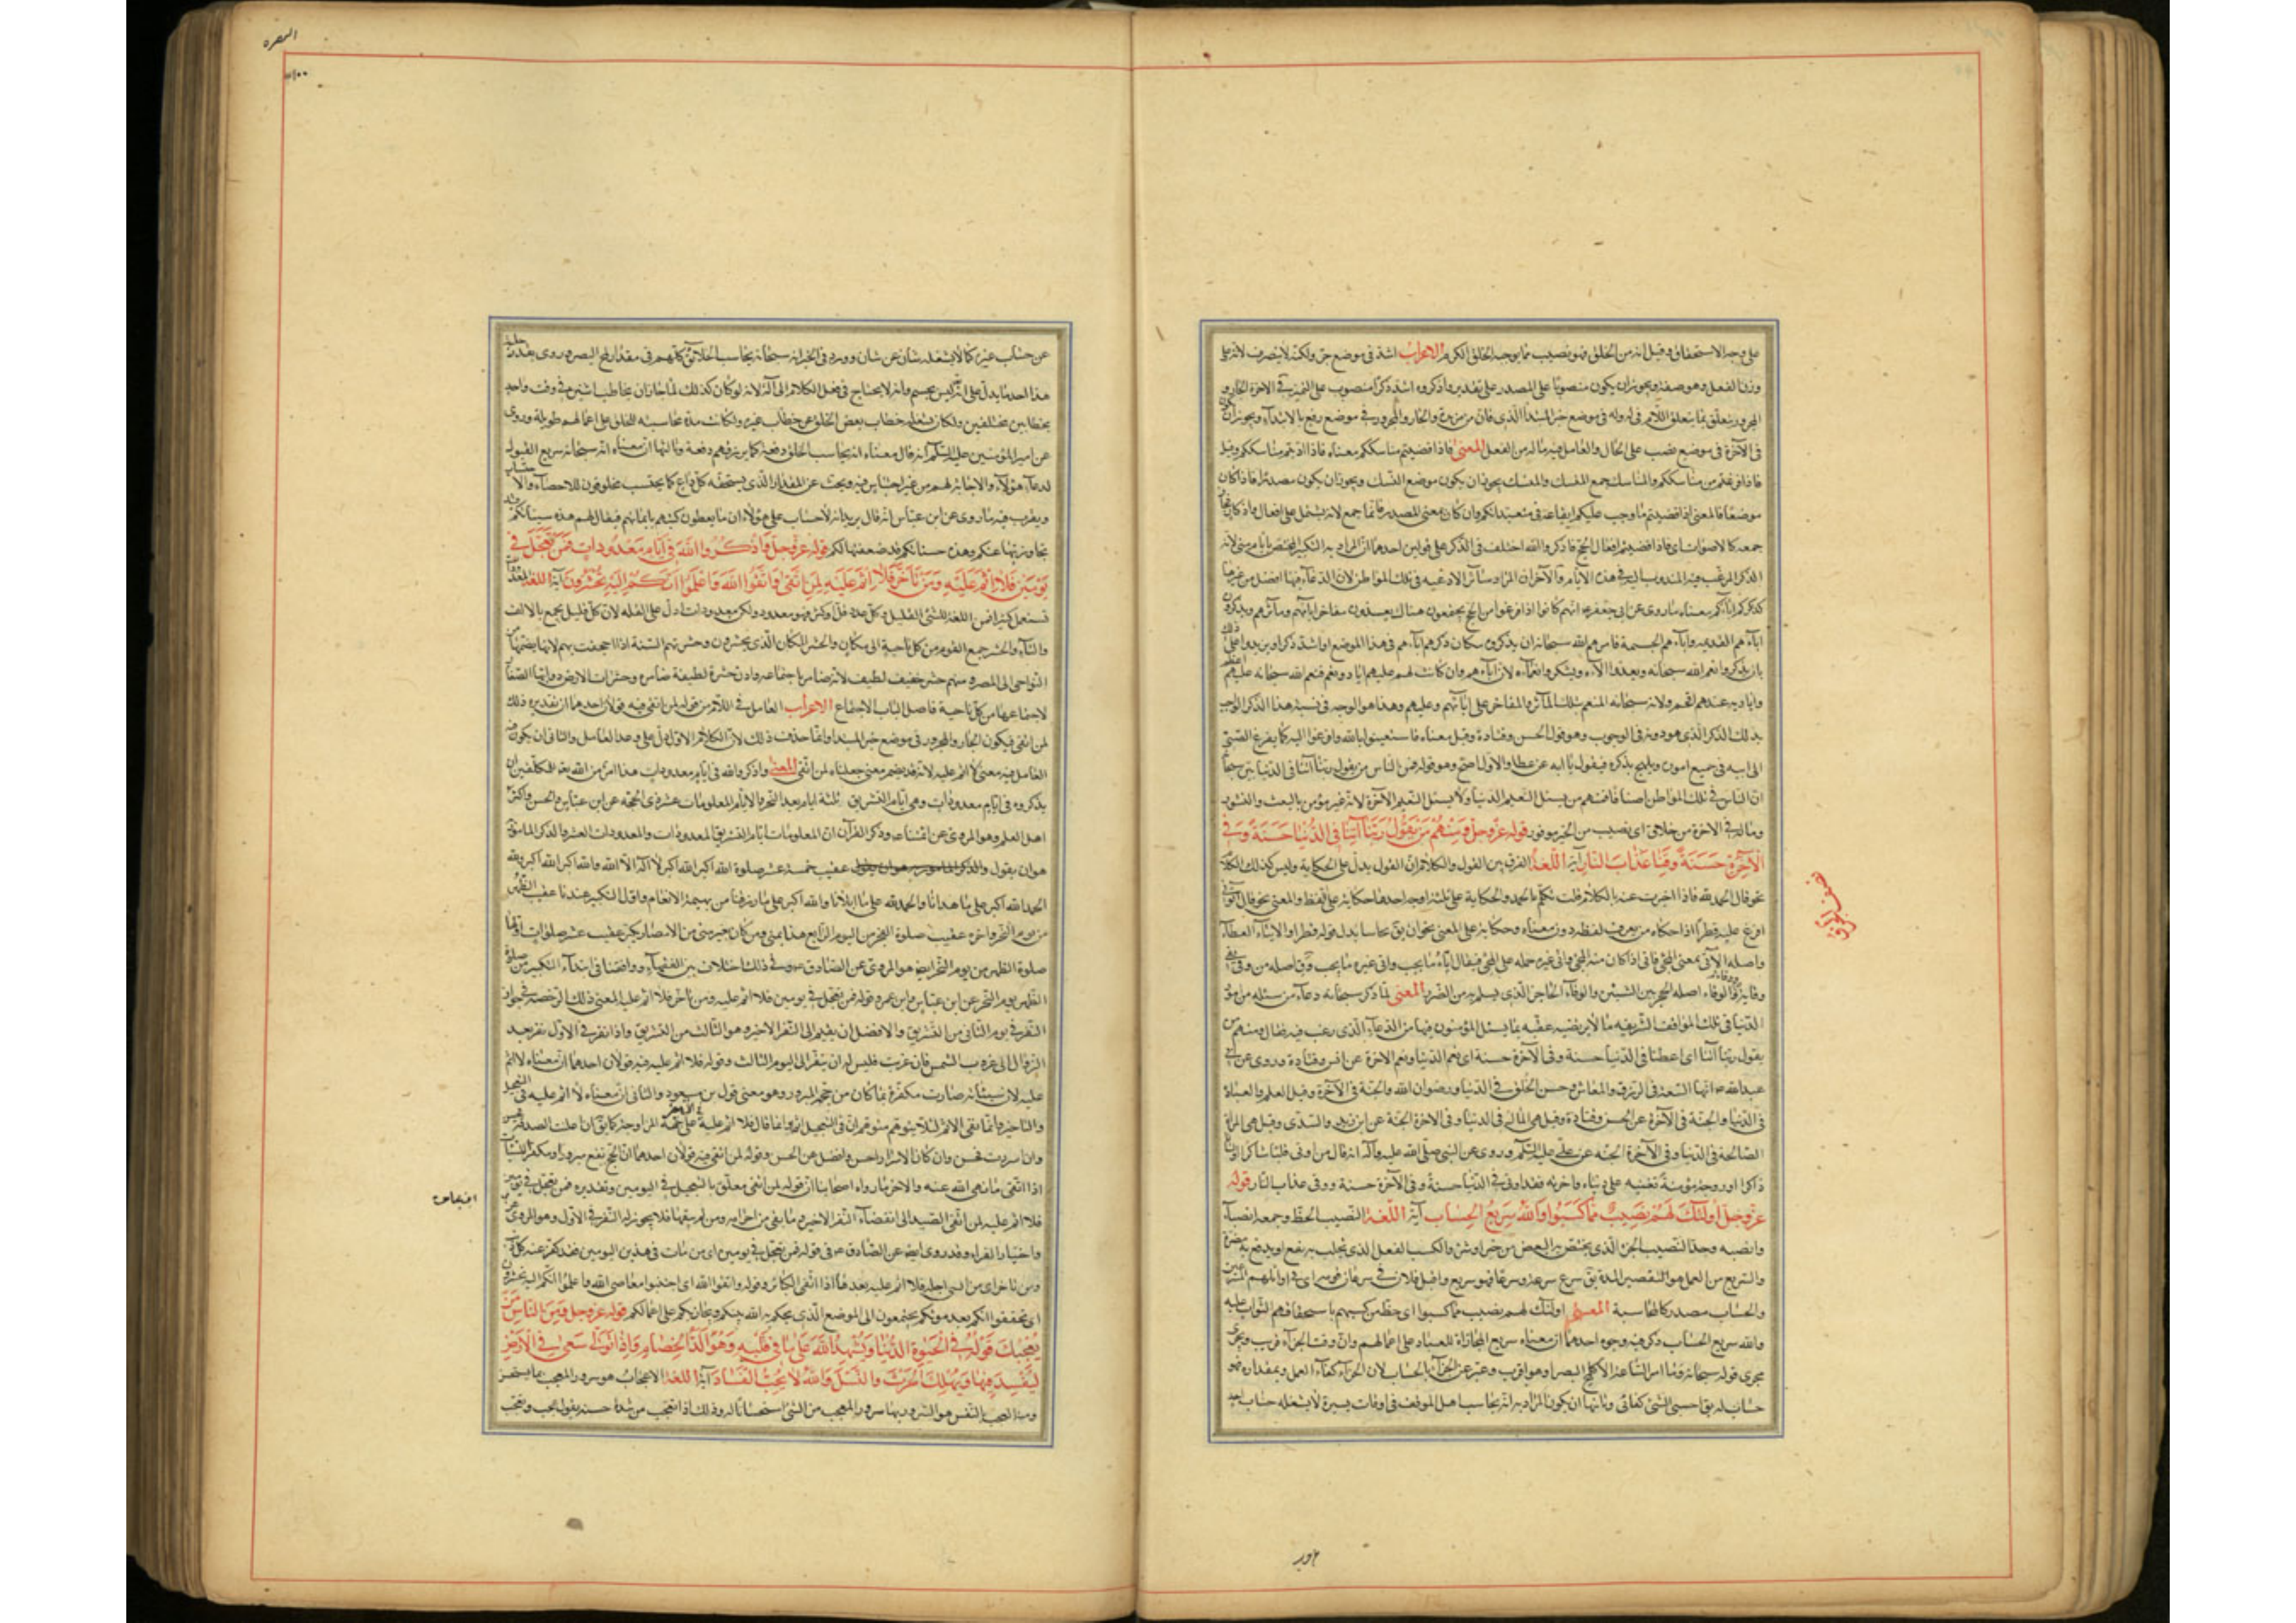 على وجه الاستحقاق وقيل انه من الخلق فهو نصيب مما يوجبه الخلق الكريم الاعراب اشد في موضع جر ولكنه لا ينصرف لانه على
وزن الفعل وهو صفة ويجوز ان يكون منصوبا على المصدر على تقدير واذكروه اشد ذكرا منصوب على التميز في الاخرة الجار و
المجرور يتعلق بما يتعلق اللام في له وله في موضع خبر المبتدأ الذي فان من مزيدة والجار والمجرور في موضع رفع بالابتداء ويجوز ان يكون
في الآخرة في موضع نصب على الحال والعامل فيه ماله من الفعل المعنى فاذا قضيتم مناسككم معناه فاذا اديتم مناسككم وقيل
فاذا فرغتم من مناسككم والمناسك جمع المنسك والمنسك يجوز ان يكون موضع النسك ويجوز ان يكون مصدرا فاذا كان
موضعا فالمعنى اذا قضيتم ما وجب عليكم ايقاعه في متعبداتكم وان كان بمعنى المصدر فانما جمع لانه يشتمل على افعال واذكار فجاز
جمعه كالاصوات اى فاذا قضيتم افعال الحج فاذكروا الله اختلف في الذكر على قولين احدهما ان المراد به التكبير المختص بايام منى لانه
الذكر المرغب فيه المندوب اليه في هذه الايام والآخر ان المراد سائر الادعية في تلك المواطن لان الدعاء فيها افضل من غيرها
كذكركم آباءكم معناه ما روى عن ابى جعفر انهم كانوا اذا فرغوا من الحج يجتمعون هناك يعدون مفاخر ابائهم ومآثرهم ويذكرون
اباءهم القديمة واياديهم الجسيمة فامرهم الله سبحانه ان يذكروه مكان ذكرهم اباءهم في هذا الموضع او اشد ذكرا او يزيدوا على ذلك
بان يذكروا نعم الله سبحانه ويعدوا الآءه ويشكروا نعماءه لان آباءهم وان كانت لهم عليهم اياد ونعم فنعم الله سبحانه عليهم اعظم
واياديه عندهم افخم ولانه سبحانه المنعم بتلك المآثر والمفاخر على ابائهم وعليهم وهذا هو الوجه في تشبيه هذا الذكر الواجب
بذلك الذكر الذى هو دونه في الوجوب وهو قول الحسن وقتادة وقيل معناه فاستعينوا بالله وافزعوا اليه كما يفزع الصبى
الى ابيه في جميع اموره ويلهج بذكره فيقول يا ابه عن عطا والاول اصح وهو قوله فمن الناس من يقول ربنا آتنا في الدنيا بين سبحانه
ان الناس في تلك المواطن اصناف فمنهم من يسئل النعيم الدنيا ولا يسئل النعيم الآخرة لانه غير مؤمن بالبعث والنشور
وماله في الاخرة من خلاق اى نصيب من الخير موفور قوله عز وجل ومنهم من يقول ربنا آتنا في الدنيا حسنة وفي
الآخرة حسنة وقنا عذاب النار آية اللغة الفرق بين القول والكلام ان القول يدل على الحكاية وليس كذلك الكلام
نحو قال الحمد لله فاذا اخبرت عنه بالكلام قلت تكلم بالحمد والحكاية على ثلثة اوجه احدها حكاية على اللفظ والمعنى نحو قال آتونى
افرغ عليه قطرا اذا حكاه من يعرف لفظه دون معناه وحكاية على المعنى نحو ان يق نحاسا بدل قوله قطرا والايتاء الاعطاء
واصله الآتى بمعنى المجئ فاتى اذا كان منه المجئ وآتى غيره حمله على المجئ فيقال اتاه ما يحب واتى غيره ما يحب وقى اصله من وقى يقى
وقاية ووقاء والوقاء اصله الحجز بين الشيئين والوقاء الحاجز الذى يسلم به من الضرر المعنى لما ذكر سبحانه دعاء من سئله من امور
الدنيا في تلك المواقف الشريفة ما لا يرتضيه عقبه بما يسئل المؤمنون فيها من الدعاء الذى رغب فيه فقال ومنهم من
يقول ربنا آتنا اى اعطنا في الدنيا حسنة وفي الآخرة حسنة اى نعم الدنيا ونعم الاخرة عن انس وقتادة وروى عن ابى
عبد الله انها السعة في الرزق والمعاش وحسن الخلق في الدنيا ورضوان الله والجنة في الآخرة وقيل العلم والعبادة
في الدنيا والجنة في الآخرة عن الحسن وقتادة وقيل هي المال في الدنيا وفي الاخرة الجنة عن ابن زيد والسدى وقيل هي المراة
الصالحة في الدنيا وفي الآخرة الجنة عن على عليه السلم وروى عن النبي صلى الله عليه وآله انه قال من اوتى قلبا شاكرا ولسانا
ذاكرا وزوجة مؤمنة تعينه على دنياه واخراه فقد اوتى في الدنيا حسنة وفي الآخرة حسنة ووقى عذاب النار قوله
عز وجل اولئك لهم نصيب مما كسبوا والله سريع الحساب آية اللغة النصيب الحظ وجمعه انصباء
وانصبه وحد النصيب الجزء الذى يختص به البعض من خير او شر والكسب الفعل الذى يجلب به نفع او يدفع به مضرة
والسريع من العمل هو القصير المدة يق سرع سرعة وسرعا فهو سريع واقبل فلان في سرعان قومه اى في اوائلهم المتسرعين
والحساب مصدر كالمحاسبة المعنى اولئك لهم نصيب مما كسبوا اى حظ من كسبهم باستحقاقهم الثواب عليه
والله سريع الحساب ذكر فيه وجوه احدها ان معناه سريع المجازاة للعباد على اعمالهم وان وقت الجزاء قريب ويجرى
مجرى قوله سبحانه وما امر الساعة الا كلمح البصر او هو اقرب وعبر عن الجزاء بالحساب لان الجزاء كفاء العمل وبمقداره فهو
حساب له يق احسبنى الشئ كفانى وثانيها ان يكون المراد به انه يحاسب اهل الموقف في اوقات يسيرة لا يشغله حساب احد
البقره
١٠٠
عن حساب غيره كما لا يشغله شان عن شان وورد في الخبر انه سبحانه يحاسب الخلائق كلهم في مقدار لمح البصر وروى بقدر حلب شاة
هذا احد ما يدل على انه ليس بجسم وانه لا يحتاج في فعل الكلام الى آلة لانه لو كان كذلك لما جاز ان يخاطب اثنين في وقت واحد
بخطابين مختلفين ولكان يشغله خطاب بعض الخلق عن خطاب غيره ولكانت مدة محاسبته للخلق على اعمالهم طويلة وروى
عن امير المؤمنين عليه السلم انه قال معناه انه يحاسب الخلق دفعة كما يرزقهم دفعة وثالثها ان معناه انه سبحانه سريع القبول
لدعاء هؤلاء والاجابة لهم من غير احتباس فيه وبحث عن المقدار الذى يستحقه كل داع كما يحتسب مخلوقون للاحصاء والاحتساب
ويقرب منه ما روى عن ابن عباس انه قال يريد انه لا حساب على هؤلاء ان ما يعطون كتبهم بايمانهم فيقال لهم هذه سيئاتكم قد
تجاوزت بها عنكم وهذه حسناتكم قد ضعفتها لكم قوله عز وجل واذكروا الله في ايام معدودات فمن تعجل في
يومين فلا اثم عليه ومن تأخر فلا اثم عليه لمن اتقى واتقوا الله واعلموا انكم اليه تحشرون آية اللغة المعدودات
تستعمل كثيرا في اللغة للشئ القليل وكل عدد قل او كثر فهو معدود ولكن معدودات ادل على القلة لان كل قليل يجمع بالالف
والتاء والحشر جمع القوم من كل ناحية الى مكان والمحشر المكان الذى يحشرون وحشرتهم السنة اذا اجحفت بهم لانها يضمهم من
النواحى الى المصر وسهم حشر خفيف لطيف لانه ضامر باجتماعه واذن حشرة لطيفة ضامر وحشرات الارض دوابها الصغار
لاجتماعها من كل ناحية فاصل الباب الاجتماع الاعراب العامل في اللام من قوله لمن اتقى فيه قولان احدهما ان تقديره ذلك
لمن اتقى فيكون الجار والمجرور في موضع خبر المبتدا وانما حذف ذلك لان الكلام الاول دل على وعد العامل والثانى ان يكون
العامل فيه معنى لا اثم عليه لانه قد يضم معنى جعلناه لمن اتقى المعنى واذكروا الله في ايام معدودات هذا امر من الله تعالى للمكلفين ان
يذكروه في ايام معدودات وهي ايام التشريق ثلثة ايام بعد النحر والايام المعلومات عشر ذى الحجة عن ابن عباس والحسن واكثر
اهل العلم وهو المروى عن ائمتنا وذكر الفراء ان المعلومات ايام التشريق المعدودات والمعدودات العشر والذكر المامور به
هو ان يقول عقيب خمسة عشر صلوة الله اكبر الله اكبر لا اله الا الله والله اكبر الله اكبر ولله
الحمد الله اكبر على ما هدانا والحمد لله على ما ابلانا والله اكبر على ما رزقنا من بهيمة الانعام واول التكبير عندنا عقيب الظهر
من يوم النحر واخره عقيب صلوة الفجر من اليوم الرابع هذا بمنى ومن كان بغير منى من الامصار يكبر عقيب عشر صلوات اولها
صلوة الظهر من يوم النحر ايضا هو المروى عن الصادق وفي ذلك اختلاف بين الفقهاء ووافقنا في ابتداء التكبير من صلوة
الظهر يوم النحر عن ابن عباس وابن عمر وقوله فمن تعجل في يومين فلا اثم عليه ومن تأخر فلا اثم عليه المعنى ذلك الرخصة في جواز
النفر في يوم الثانى من التشريق والافضل ان يقيم الى النفر الاخير وهو الثالث من التشريق واذا نفر في الاول نفر بعد
الزوال الى غروب الشمس فان غربت فليس له ان ينفر الى اليوم الثالث وقوله فلا اثم عليه فيه قولان احدهما ان معناه لا اثم
عليه لان سيئاته صارت مكفرة بما كان من حجه المبرور وهو معنى قول بن مسعود والثانى ان معناه لا اثم عليه في التعجيل
والتاخير وانما نفى الاثم لئلا يتوهم متوهم ان في التعجيل اثم وانما قال فلا اثم عليه في التاخير على جهة المزاوجة كما يق ان اعلنت الصدقة فحسن
وان اسررت فحسن وان كان الاسرار احسن وافضل عن الحسن وقوله لمن اتقى فيه قولان احدهما ان الحج يقع مبرورا ومكفرا للسيئات
اذا اتقى ما نهى الله عنه والاخر ما رواه اصحابنا ان قوله لمن اتقى متعلق بالتعجيل في اليومين وتقديره فمن تعجل في يومين
فلا اثم عليه لمن اتقى الصيد الى انقضاء النفر الاخير وما بقى من احرامه ومن لم يتقها فلا يجوز له النفر في الاول وهو المروى عن
واختيار الفراء وقد روى ايضا عن الصادق في قوله فمن تعجل في يومين اى من مات في هذين اليومين فقد كفر عنه كل
ومن تاخر اى من انسى اجله فلا اثم عليه بعدها اذا اتقى الكبائر وقوله واتقوا الله اى اجتنبوا معاصى الله واعلموا انكم اليه تحشرون
اى تحققوا انكم بعد موتكم يجتمعون الى الموضع الذى يحكم به الله بينكم ويجازيكم على اعمالكم قوله عز وجل ومن الناس من
يعجبك قوله في الحيوة الدنيا ويشهد الله على ما في قلبه وهو الد الخصام واذا تولى سعى في الارض
ليفسد فيها ويهلك الحرث والنسل والله لا يحب الفساد آية اللغة الاعجاب هو سرور المعجب بما يستحسن
ومنه العجب بالنفس هو السرور بها سرور المعجب من الشئ استحسانا له وذلك اذا تعجب من شدة حسنه يقول عجب وتعجب